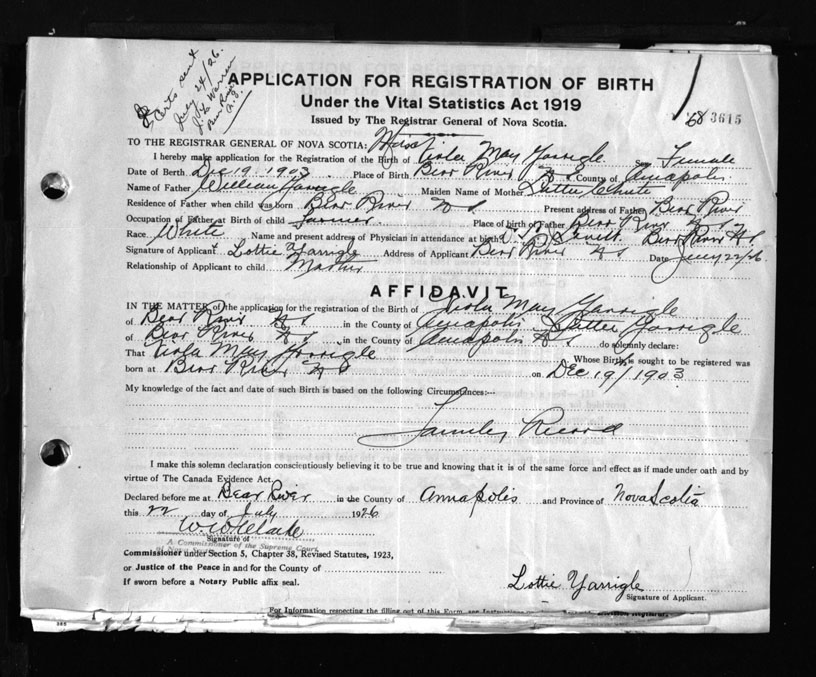 Certs sent
July 24/26.
J. E. Warren
Bear River
N.S.
APPLICATION FOR REGISTRATION OF BIRTH
Under the Vital Statistics Act 1919
Issued by The Registrar General of Nova Scotia.
68 3615
TO THE REGISTRAR GENERAL OF NOVA SCOTIA:
I hereby make application for the Registration of the Birth of Viola May Yarrigle Sex Female
Date of Birth Dec 19 1903 Place of Birth Bear River N.S. County of Annapolis
Name of Father William Yarrigle Maiden Name of Mother Chute
Residence of Father when child was born Bear River N S Present address of Father Bear River
Occupation of Father at Birth of child Farmer Place of birth of Father Bear River N S
Race White Name and present address of Physician in attendance at birth Bear River N S
Signature of Applicant Lottie Yarrigle Address of Applicant Bear River N S Date July 22/26
Relationship of Applicant to child Mother
AFFIDAVIT
IN THE MATTER of the application for the registration of the Birth of Viola May Yarrigle
of Bear River N S in the County of Annapolis Lottie Yarrigle
of Bear River N S in the County of Annapolis N S do solemnly declare:
That Viola May Yarrigle Whose Birth is sought to be registered was
born at Bear River N S on Dec 19th 1903
My knowledge of the fact and date of such Birth is based on the following Circumstances:—
Family Record
I make this solemn declaration conscientiously believing it to be true and knowing that it is of the same force and effect as if made under oath and by
virtue of The Canada Evidence Act.
Declared before me at Bear River in the County of Annapolis and Province of Nova Scotia
this 22 day of July 1926
W. W. Clarke
Signature of
A Commissioner of the Supreme Court
Commissioner under Section 5, Chapter 38, Revised Statutes, 1923,
or Justice of the Peace in and for the County of
If sworn before a Notary Public affix seal.
Lottie Yarrigle
Signature of Applicant.
For Information respecting the filling out of this Form, see Instructions